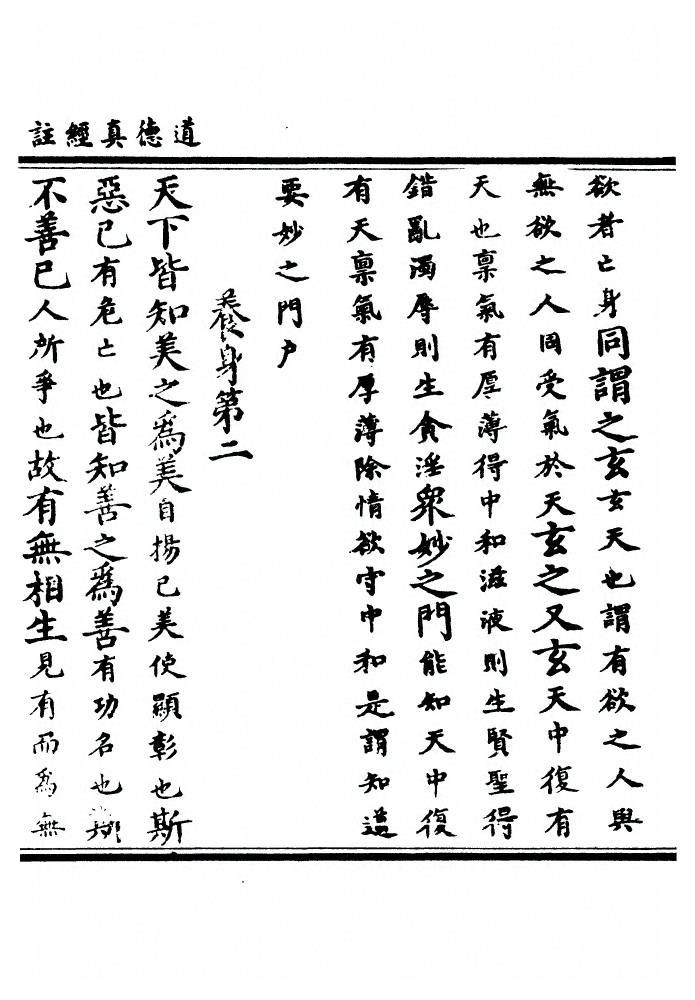 道德真經註
欲者亡身同謂之玄玄天也謂有欲之人與
無欲之人同受氣於天玄之又玄天中復有
天也稟氣有厚薄得中和滋液則生賢聖得
錯亂濁辱則生貪淫衆妙之門能知天中復
有天稟氣有厚薄除情欲守中和是謂知道
要妙之門戶
養身第二
天下皆知美之爲美自揚己美使顯彰也斯
惡已有危亡也皆知善之爲善有功名也斯
不善已人所爭也故有無相生見有而爲無